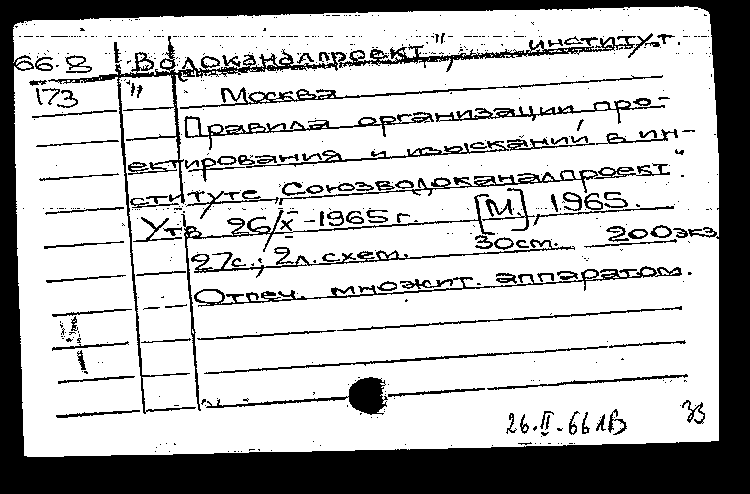 66.8 Водоканалпроект", институт.
173 " Москва
Правила организации про-
ектирования и изысканий в ин-
ституте "Союзводоканалпроект".
Утв. 26/X-1965г. [М.], 1965.
27с.; 2л.схем. 30ст. 200экз.
Отпеч. множит. аппаратом.
26.II.66